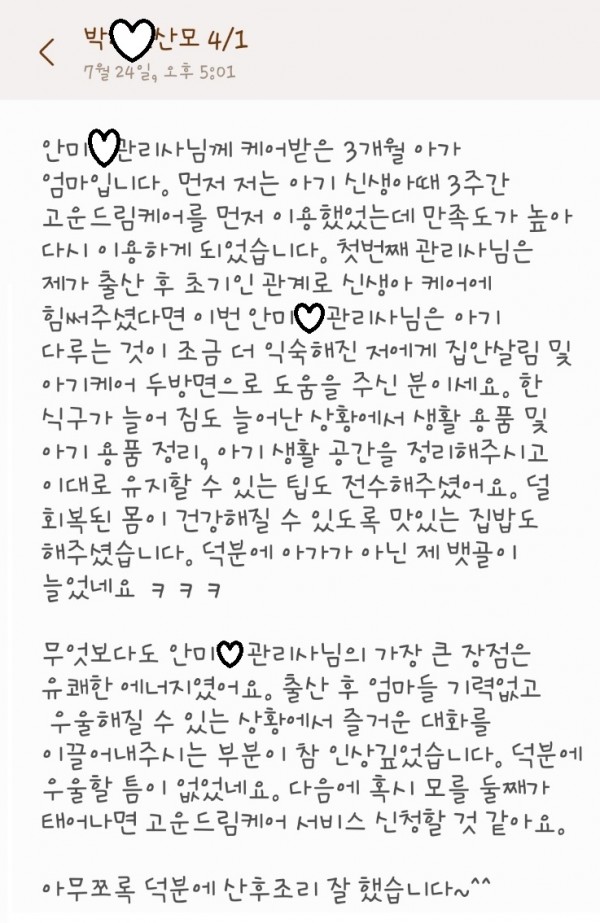 박 산모 4/1
7월 24일, 오후 5:01
안미 관리사님께 케어받은 3개월 아가
엄마입니다. 먼저 저는 아기 신생아때 3주간
고운드림케어를 먼저 이용했었는데 만족도가 높아
다시 이용하게 되었습니다. 첫번째 관리사님은
제가 출산 후 초기인 관계로 신생아 케어에
힘써주셨다면 이번 안미 관리사님은 아기
다루는 것이 조금 더 익숙해진 저에게 집안살림 및
아기케어 두방면으로 도움을 주신 분이세요. 한
식구가 늘어 짐도 늘어난 상황에서 생활 용품 및
아기 용품 정리, 아기 생활 공간을 정리해주시고
이대로 유지할 수 있는 팁도 전수해주셨어요. 덜
회복된 몸이 건강해질 수 있도록 맛있는 집밥도
해주셨습니다. 덕분에 아가가 아닌 제 뱃골이
늘었네요 ㅋㅋㅋ
무엇보다도 안미 관리사님의 가장 큰 장점은
유쾌한 에너지였어요. 출산 후 엄마들 기력없고
우울해질 수 있는 상황에서 즐거운 대화를
이끌어내주시는 부분이 참 인상깊었습니다. 덕분에
우울할 틈이 없었네요. 다음에 혹시 모를 둘째가
태어나면 고운드림케어 서비스 신청할 것 같아요.
아무쪼록 덕분에 산후조리 잘 했습니다~^^